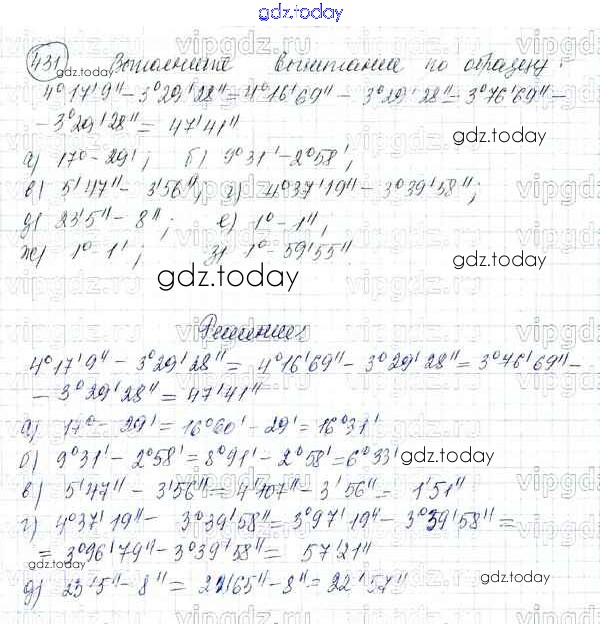 gdz.today
431 Выполните вычитание по образцу:
4°17'9" - 3°29'28" = 4°16'69" - 3°29'28" = 3°76'69" -
- 3°29'28" = 47'41"
а) 17° - 29'; б) 9°31' - 2°58';
в) 5'47" - 3'56"; г) 4°37'19" - 3°39'58";
д) 23'5" - 8"; е) 1° - 1";
ж) 1° - 1'; з) 1° - 59'55".
gdz.today
Решение:
4°17'9" - 3°29'28" = 4°16'69" - 3°29'28" = 3°76'69" -
- 3°29'28" = 47'41"
а) 17° - 29' = 16°60' - 29' = 16°31'
б) 9°31' - 2°58' = 8°91' - 2°58' = 6°33'
в) 5'47" - 3'56" = 4'107" - 3'56" = 1'51"
г) 4°37'19" - 3°39'58" = 3°97'19" - 3°39'58" =
= 3°96'79" - 3°39'58" = 57'21"
д) 23'5" - 8" = 22'65" - 8" = 22'57"
gdz.today